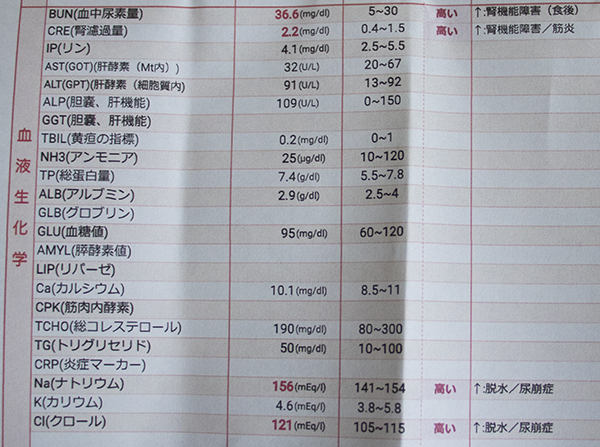 BUN(血中尿素量) 36.6(mg/dl) 5~30 高い ↑:腎機能障害（食後）
CRE(腎濾過量) 2.2(mg/dl) 0.4~1.5 高い ↑:腎機能障害/筋炎
IP(リン) 4.1(mg/dl) 2.5~5.5
AST(GOT)(肝酵素（Mt内）) 32(U/L) 20~67
ALT(GPT)(肝酵素（細胞質内) 91(U/L) 13~92
ALP(胆嚢、肝機能) 109(U/L) 0~150
GGT(胆嚢、肝機能)
TBIL(黄疸の指標) 0.2(mg/dl) 0~1
NH3(アンモニア) 25(μg/dl) 10~120
TP(総蛋白量) 7.4(g/dl) 5.5~7.8
ALB(アルブミン) 2.9(g/dl) 2.5~4
GLB(グロブリン)
GLU(血糖値) 95(mg/dl) 60~120
AMYL(膵酵素値)
LIP(リパーゼ)
Ca(カルシウム) 10.1(mg/dl) 8.5~11
CPK(筋肉内酵素)
TCHO(総コレステロール) 190(mg/dl) 80~300
TG(トリグリセリド) 50(mg/dl) 10~100
CRP(炎症マーカー)
Na(ナトリウム) 156(mEq/l) 141~154 高い ↑:脱水／尿崩症
K(カリウム) 4.6(mEq/l) 3.8~5.8
Cl(クロール) 121(mEq/l) 105~115 高い ↑:脱水／尿崩症
血液生化学